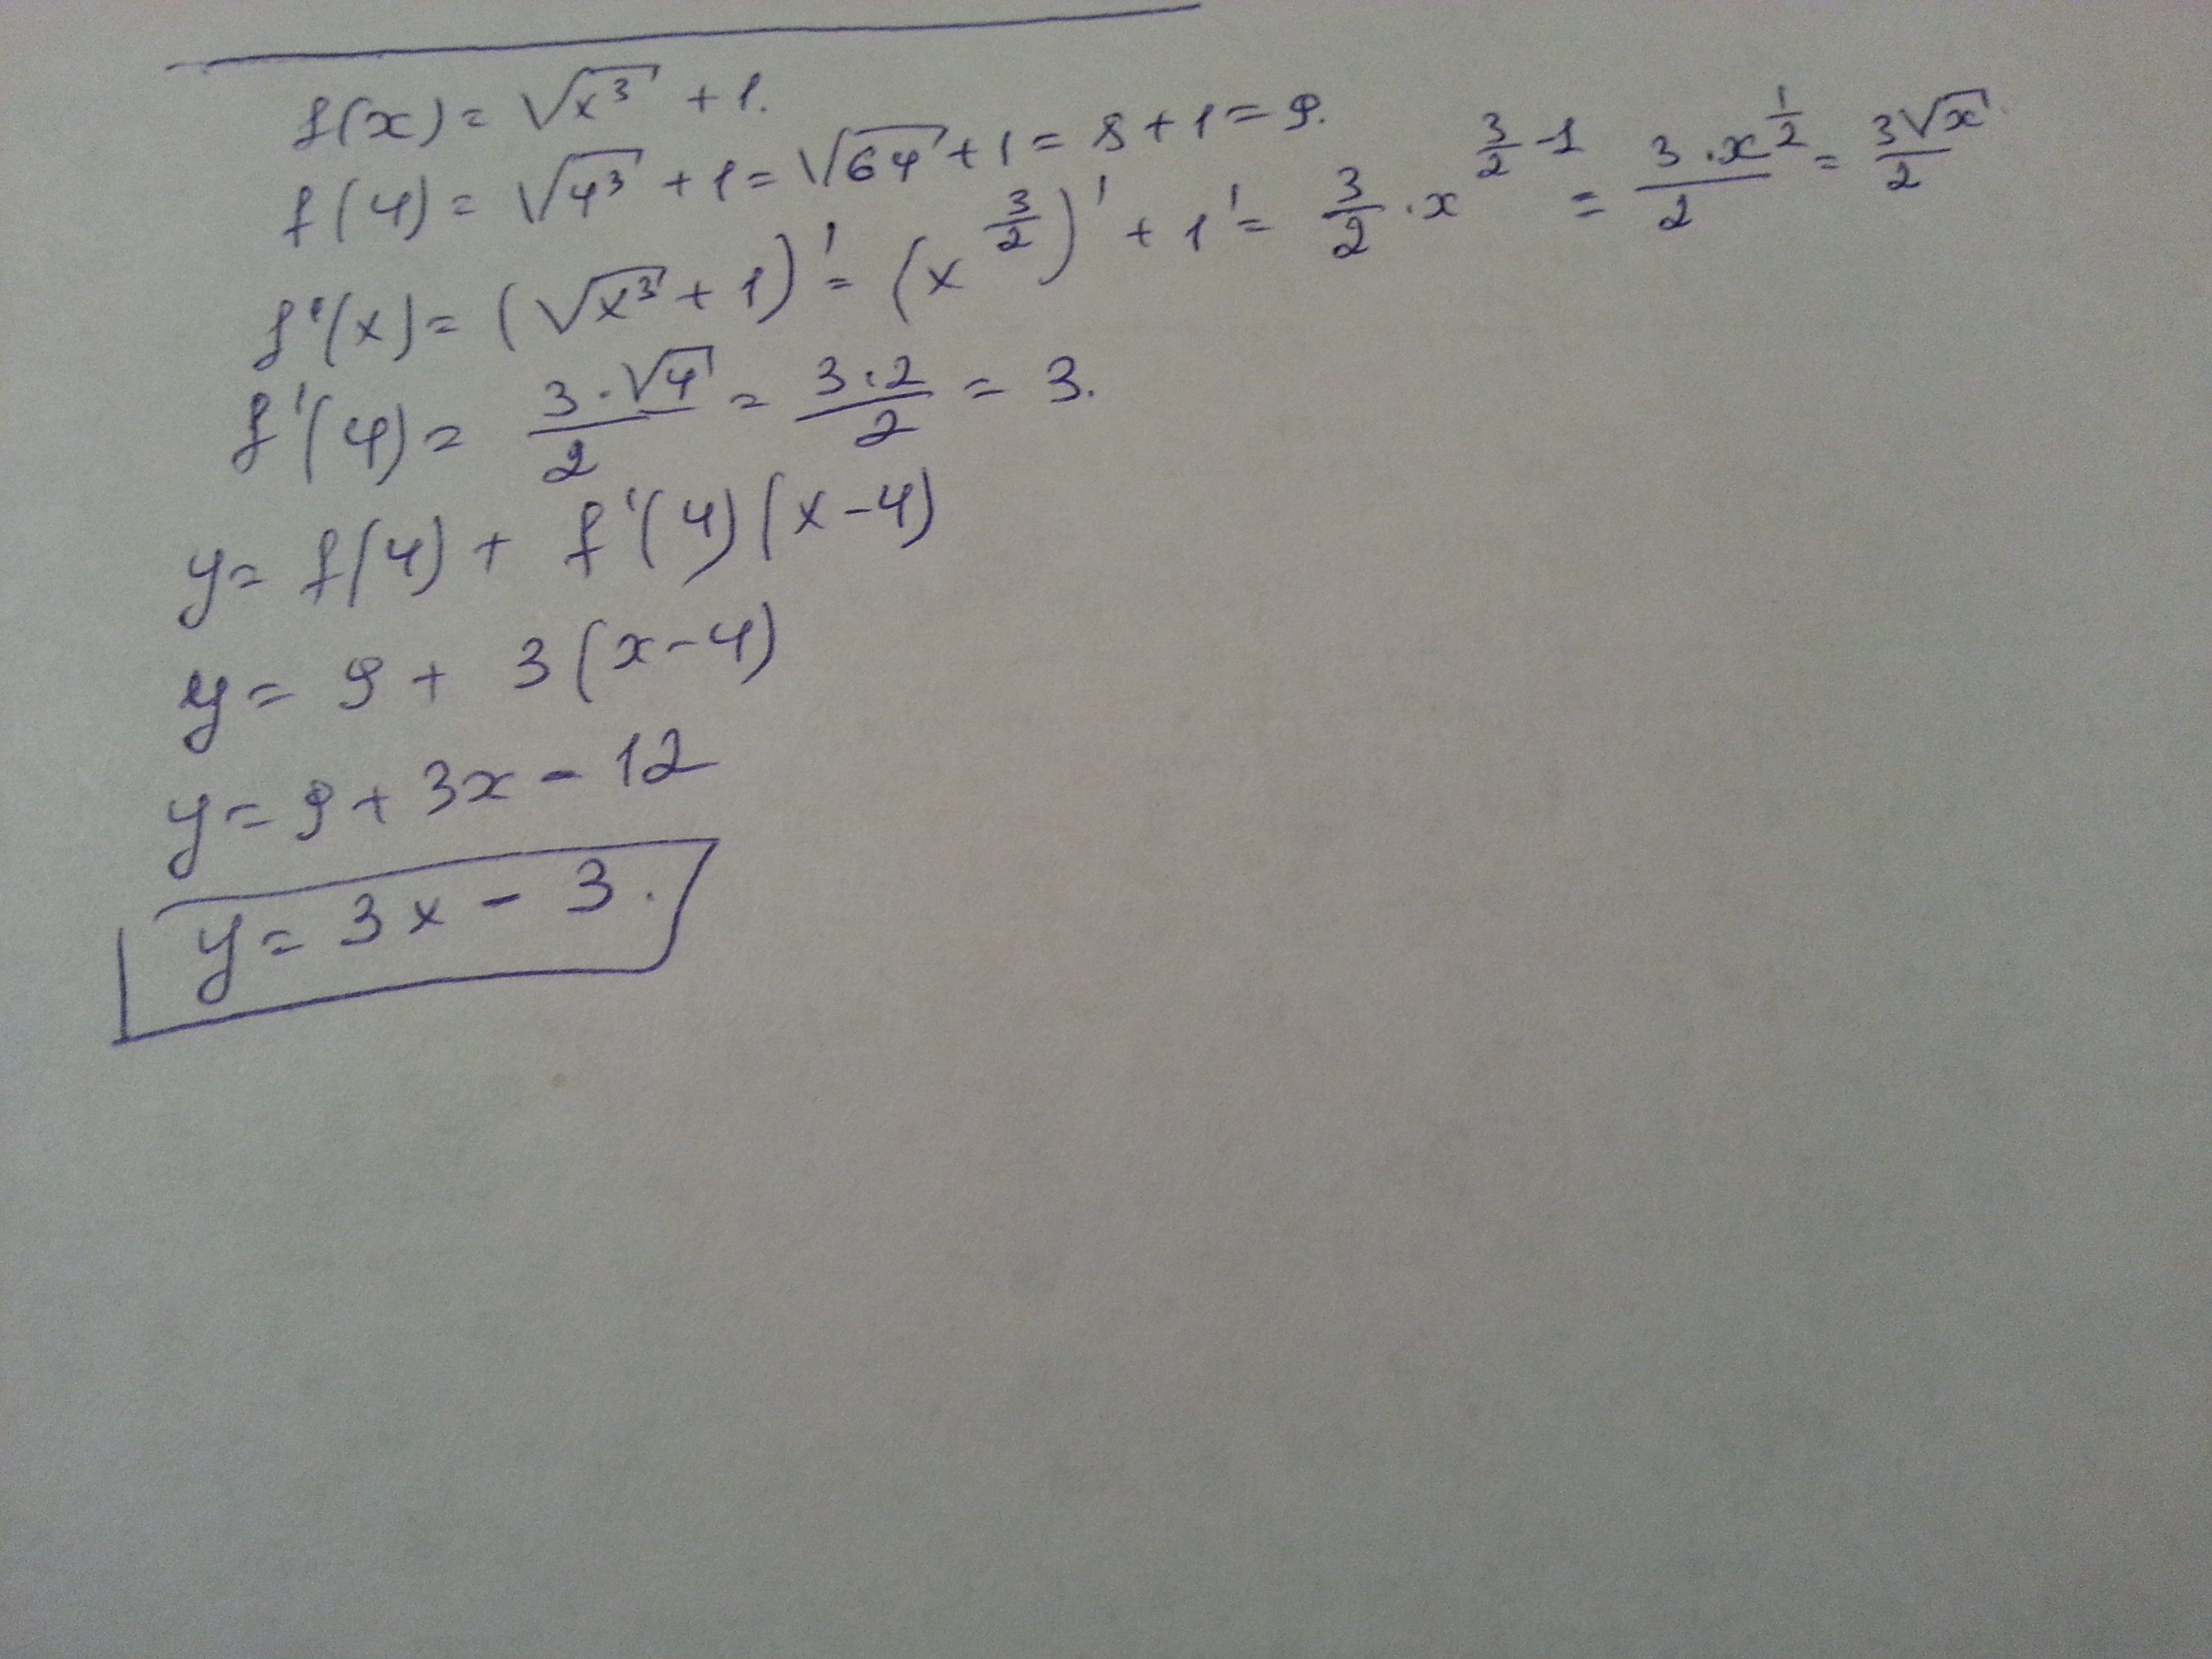 f(x) = √x³ + 1.
f(4) = √4³ + 1 = √64 + 1 = 8 + 1 = 9.
f'(x) = (√x³ + 1)' = (x^(3/2))' + 1' = 3/2 · x^(3/2 - 1) = 3·x^(1/2)/2 = 3√x/2.
f'(4) = 3·√4/2 = 3·2/2 = 3.
y = f(4) + f'(4)(x-4)
y = 9 + 3(x-4)
y = 9 + 3x - 12
y = 3x - 3.